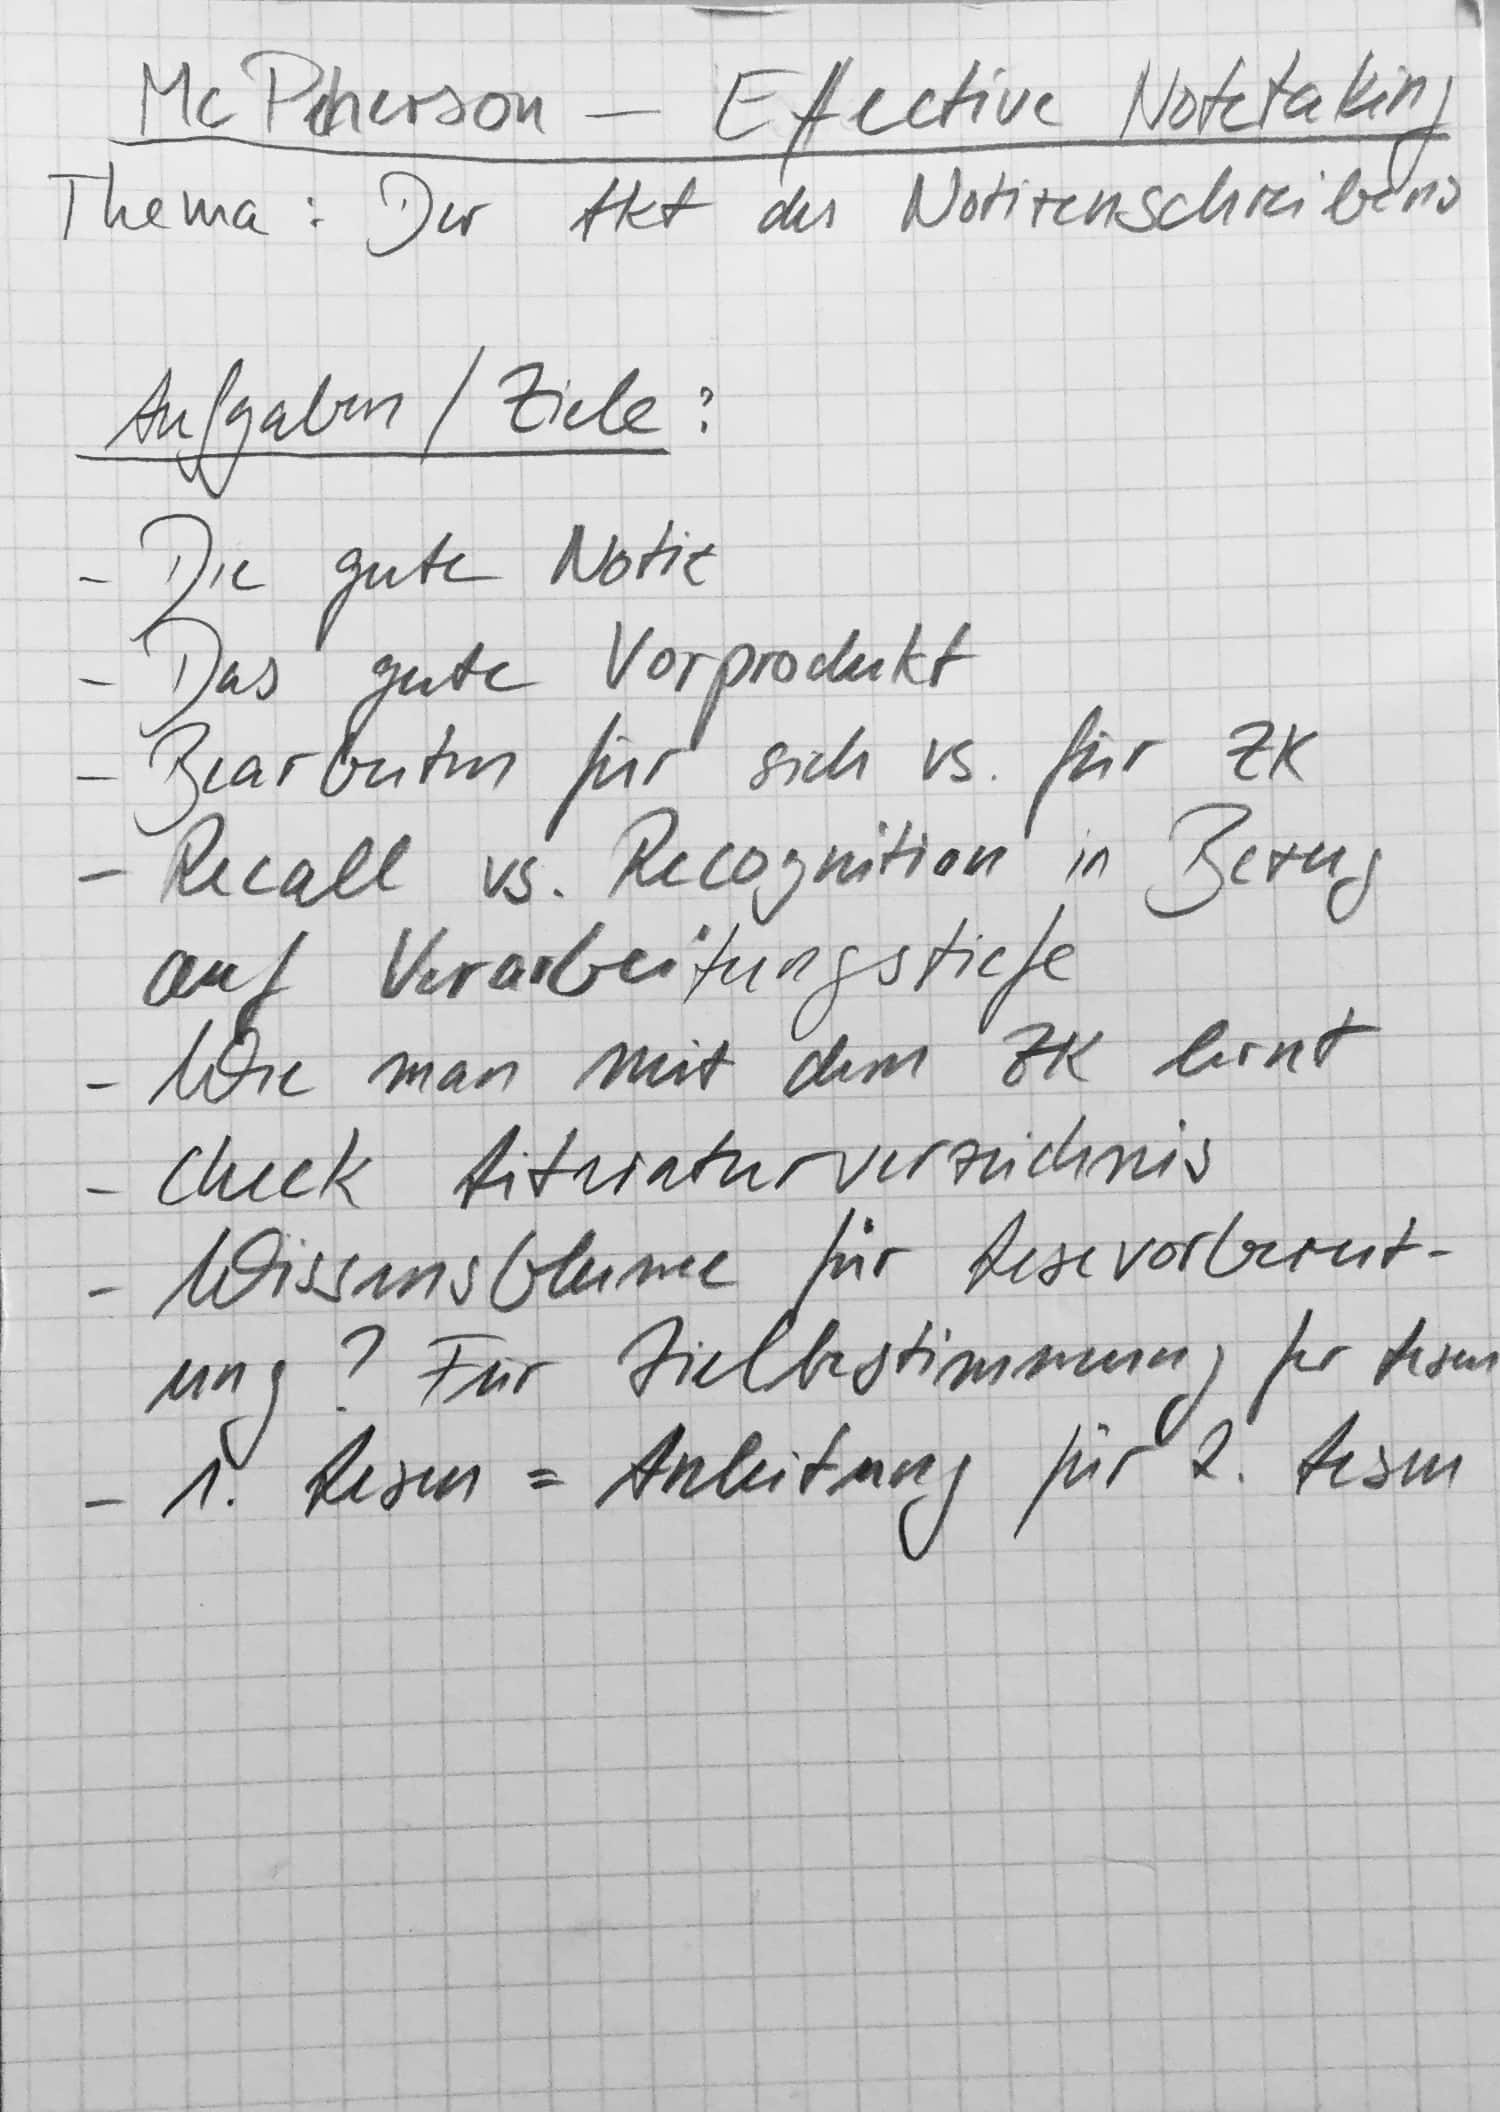 Mc Pherson – Effective Notetaking
Thema: Der Akt des Notizenschreibens
Aufgaben / Ziele:
- Die gute Notiz
- Das gute Vorprodukt
- Bearbeiten für sich vs. für ZK
- Recall vs. Recognition in Bezug
auf Verarbeitungstiefe
- Wie man mit dem ZK lernt
- Check Literaturverzeichnis
- Wissensblume für Lesevorbereit-
ung? Für Zielbestimmung für Lesen
- 1. Lesen = Anleitung für 2. Lesen